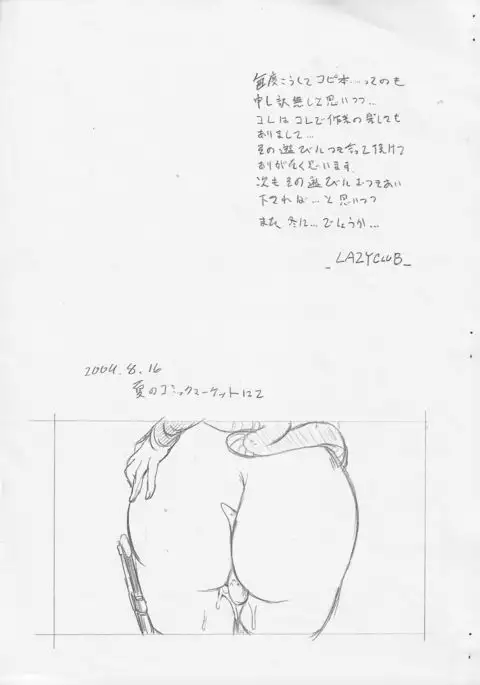 毎度こうしてコピ本…ってのも
申し訳無しと思いつつ…
コレはコレで作業の楽しても
ありまして…
その遊びにつき合って頂けて
ありがたく思います.
次もその遊びにおつきあい
下されば…と思いつつ
また 冬に…でしょうか…
_LAZYCLUB_
2004.8.16
夏のコミックマーケットにて